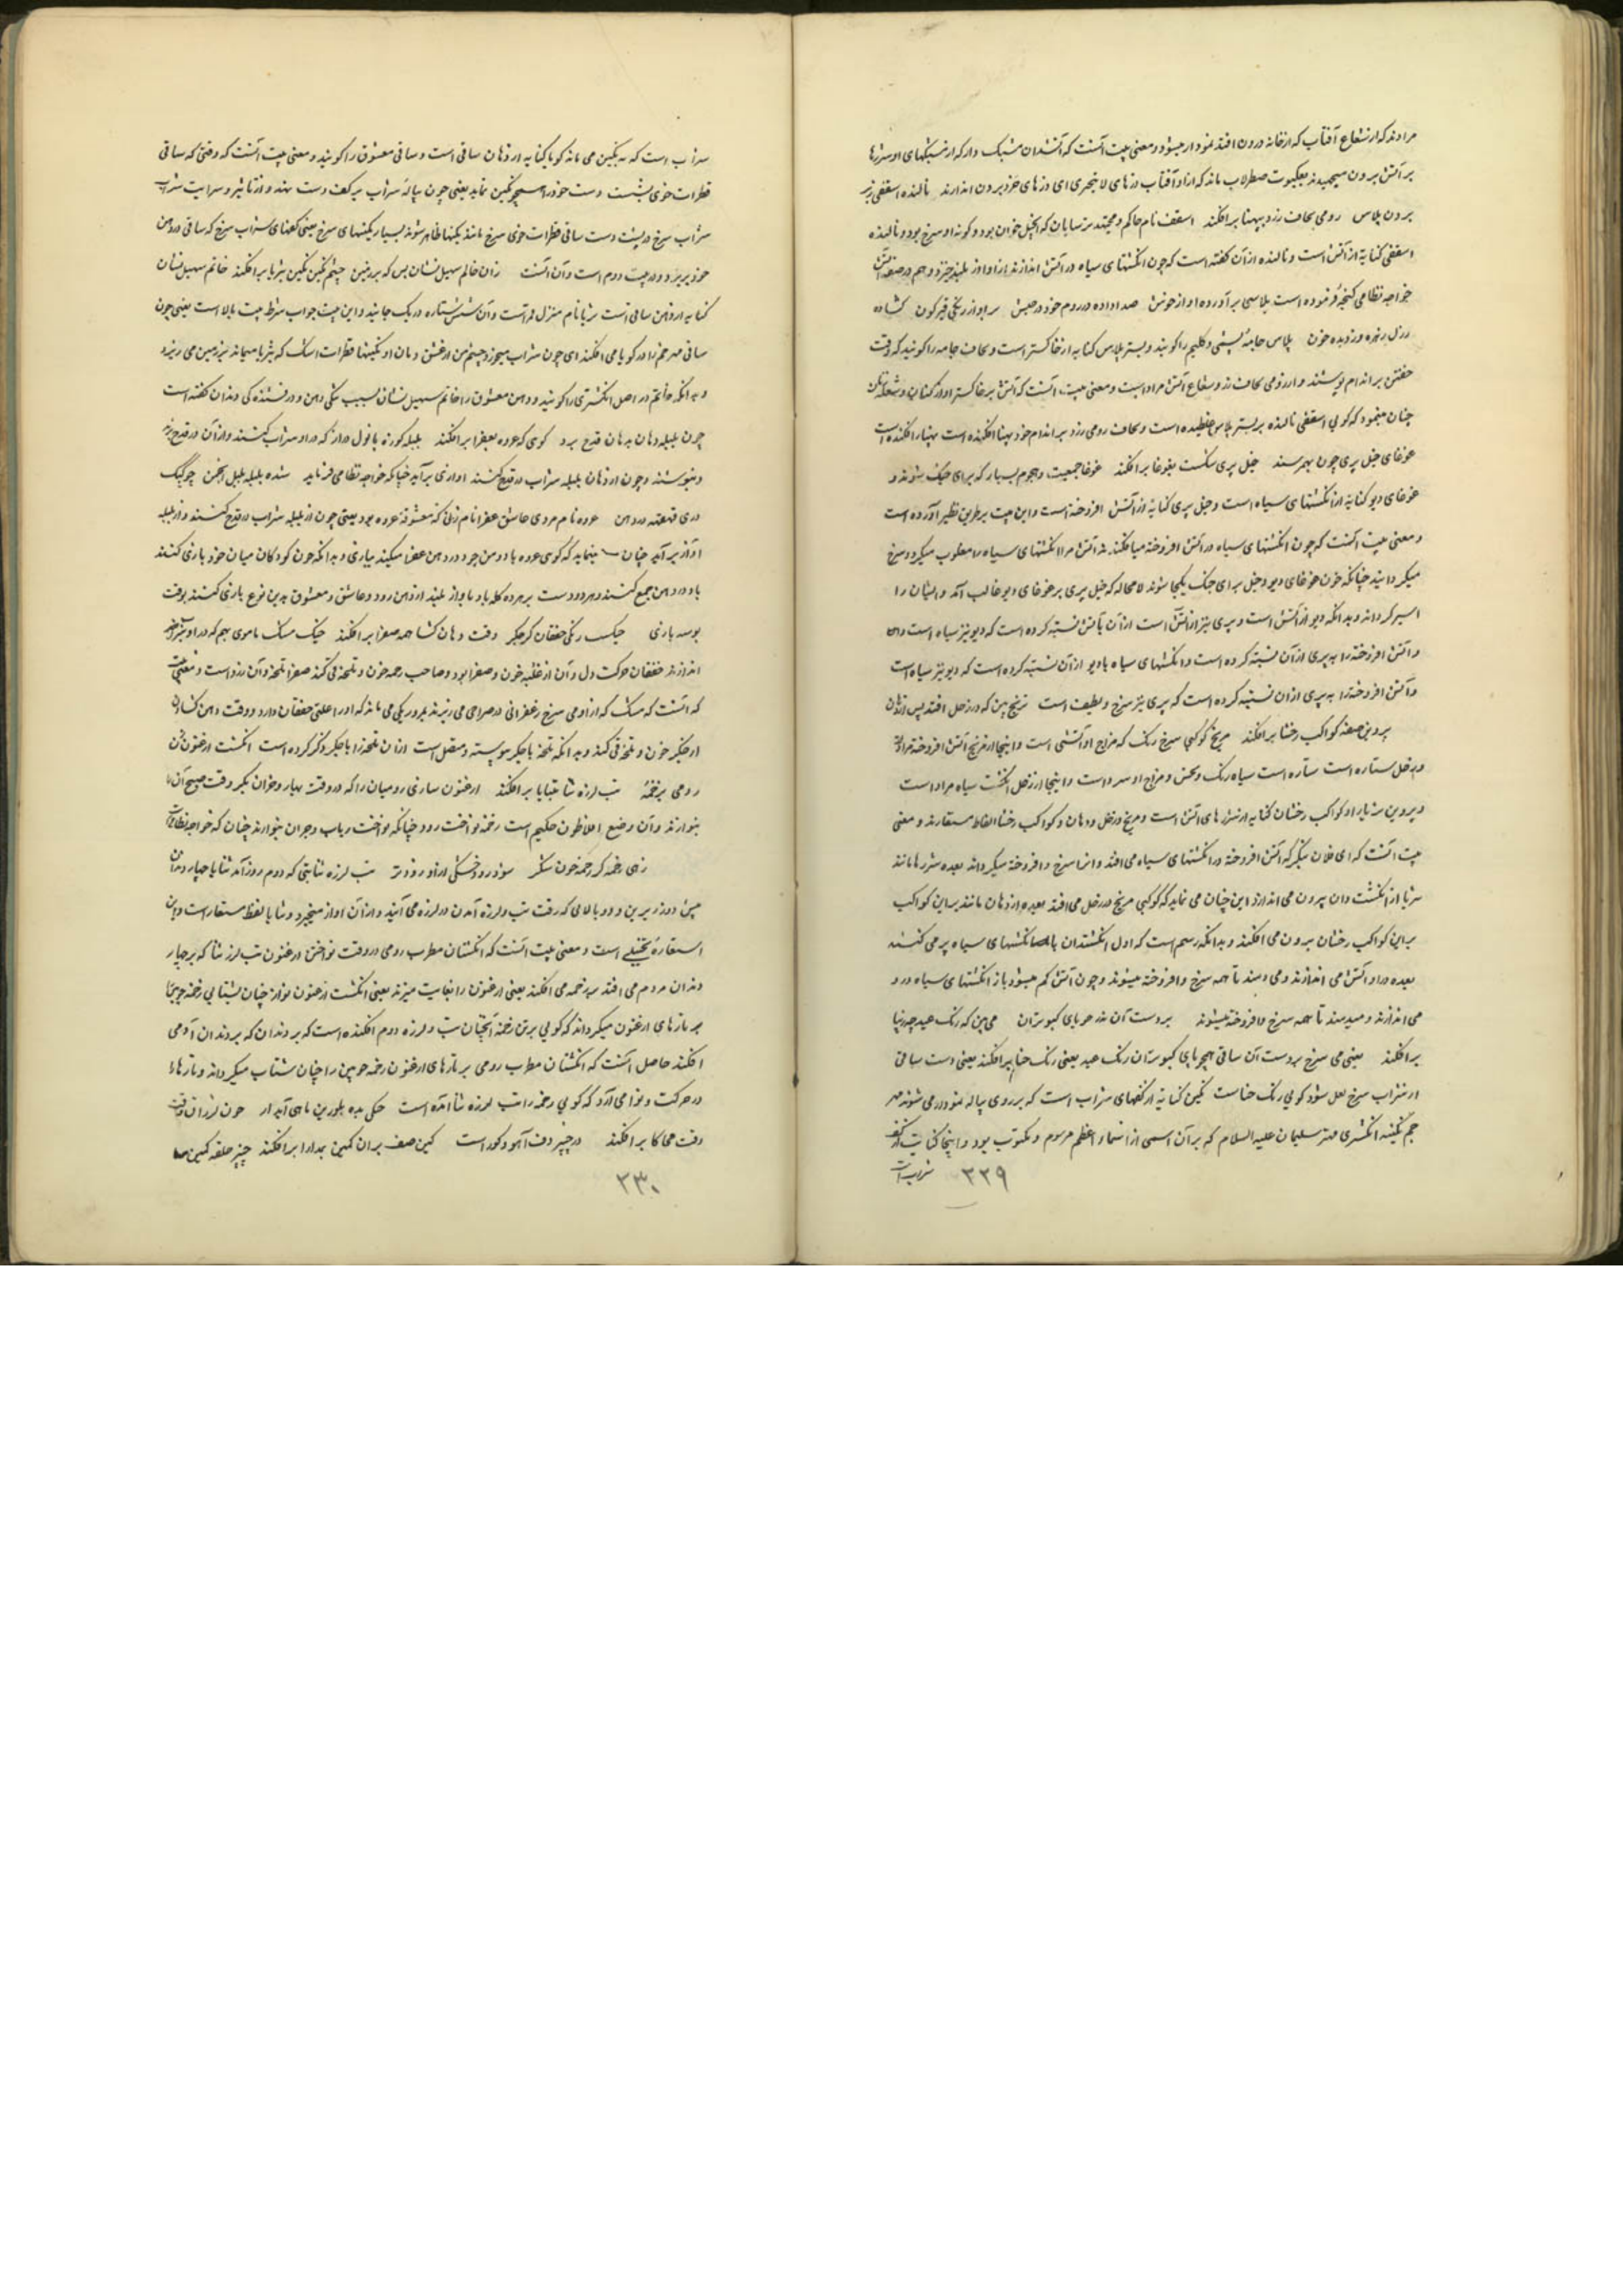 مرادند که از شعاع آفتاب که از خانه درون افتد نمودار میشود و معنی بیت آنست که آتشدان مشبک دار که از مشبکهای او شررها
بر آتش بیرون میجهیدند بعنکبوت صطرلاب ماند که ازو آفتاب درهای لایتجزی ای درهای خرد برون اندازند نالنده اسقفی زبر
بردن پلاس رومی لحاف زرد بپهنا برافکند اسقف نام حاکم و مجتهد ترسایان که انجیل خوان بود و گونه او سرخ بود و نالنده
اسقفی کنایه از آتش است و نالنده از آن گفته است که چون انگشتهای سیاه در آتش اندازند ازو آواز بلند خیزد و هم در صفت آتش
خواجه نظامی گنجه فرموده است پلاسی برآورده آواز خوش صدا داده در روم خود در حبش سر او از زنگی قیرگون کشاده
ز دل زهره و ز دیده خون پلاس جامه پشمی و گلیم را گویند و بستر پلاس کنایه از خاکستر است و لحاف جامه را گویند که وقت
خفتن بر اندام پوشند و از رومی لحاف زرد شعاع آتش مراد است و معنی بیت آنست که آتش بر خاکستر آواز کنان و شعله زنان
چنان مینمود که گویی اسقفی نالنده بر بستر پلاس غلطیده است و لحاف رومی زرد بر اندام خود پهنا افکنده است
غوغای خیل پری چون بهم رسند خیل پری شکست بغوغا برافکند غوغا جمعیت و هجوم بسیار که برای جنگ شوند و
غوغای دیو کنایه از انگشتهای سیاه است و خیل پری کنایه از آتش افروخته است و این بیت بر طریق نظیر آورده است
و معنی بیت آنست که چون انگشتهای سیاه در آتش افروخته میافکنند آتش مر انگشتهای سیاه را مغلوب میکرد و سرخ
میگردانید چنانکه چون غوغای دیو و خیل برای جنگ یکجا شوند لامحاله که خیل پری بر غوغای دیو غالب آمد و ایشان را
اسیر گرداند و بدانکه دیو از آتش است و پری نیز از آتش است از آن بآتش نسبته کرده است که دیو نیز سیاه است
و آتش افروخته را به پری از آن نسبته کرده است و انگشتهای سیاه بادیو از آن نسبته کرده است که دیو نیز سیاه است
و آتش افروخته را به پری از آن نسبته کرده است که پری نیز سرخ و لطیف است مریخ بین که در زحل افتد پس از دهان
پروین صفت کواکب رخشا برافکند مریخ کوکبی سرخ رنگ که مزاج او آتشی است و اینجا از مریخ آتش افروخته مراد
و زحل ستاره است سیاه رنگ و نحس و مزاج او سرد است و اینجا از زحل انگشت سیاه مراد است
و پروین ثریا را و کواکب رخشان کنایه از شررهای آتش است و مریخ و زحل و دهان و کواکب رخشا الفاظ مستعارند و معنی
بیت آنست که ای فلان بنگر که آتش افروخته در انگشتهای سیاه می افتد و آنرا سرخ و افروخته میگرداند بعده شررها مانند
ثریا از انگشت دان بیرون می اندازد این چنان می نماید که گوئی مریخ در زحل می افتد بعده از دهان مانند پروین کواکب
براین کواکب رخشان برون می افکند و بدانکه رسم است که اول انگشتدان با انگشتهای سیاه پر می کنند
بعده در او آتش می اندازند و می دمند تا همه سرخ و افروخته میشوند و چون آتش کم میشود باز انگشتهای سیاه در و
می اندازند و میدمند تا همه سرخ و افروخته میشوند بر دست آن تذرو چو پای کبوتران می بین که رنگ عید چه زیبا
برافکند یعنی می سرخ بر دست آن ساقی همچو پای کبوتران رنگ عید یعنی رنگ حنا برافکند یعنی دست ساقی
از شراب سرخ لعل شود گویی رنگ حناست نگین کنایه از کفهای شراب است که بر روی پیاله نمودار می شوند مهر
جم نگینه انگشتری مهتر سلیمان علیه السلام که بر آن اسمی از اسماء اعظم مرسوم و مکتوب بود و اینجا کنایت از کف
شراب است
۳۲۹
شراب است که به نگین می ماند گویا کنایه از دهان ساقی است و ساقی معشوق را گویند و معنی بیت آنست که وقتی که ساقی
قطرات خوی پشت دست خود را همچو نگین نماید یعنی چون پیاله شراب بر کف دست نهد و از تاثیر و سرایت شراب
شراب سرخ در پشت دست ساقی قطرات خوی سرخ مانند نگینها ظاهر شوند بسیار نگینهای سرخ یعنی کفهای شراب سرخ که ساقی در دهن
خود بریزد و در بیت دوم است و آن آنست زان خاتم سهیل نشان بین که بر زمین چشم نگین نگین ثریا برافکند خاتم سهیل نشان
کنایه از دهن ساقی است ثریا نام منزل قمر است و آن شش ستاره در یک جا نیند و این بیت جواب شرط بیت بالا است یعنی چون
ساقی مهر جم را در گویا می افکند ای چون شراب میخورد چشم من از عشق دهان او نگینها قطرات اشک که بثریا میماند بزمین می ریزد
و بدانکه خاتم در اصل انگشتری را گویند و دهن معشوق را خاتم سهیل نشان بسبب تنگی دهن و درخشندگی دندان گفته است
چون بلبله دهان بدهان قدح برد گوئی که عروه بعفرا برافکند بلبله کوزه با نول دراز که در او شراب کنند و از آن در قدح ریزند
و بنوشند و چون از دهان بلبله شراب در قدح کنند آوازی برآید چنانکه خواجه نظامی فرماید شده بلبله بلبل انجمن چو کبک
دری قهقهه در دهن عروه نام مردی عاشق عفرا نام زنی که معشوقه عروه بود یعنی چون از بلبله شراب در قدح کنند و از بلبله
آواز برآید چنان مینماید که گوئی عروه باد دهن خود در دهن عفرا میکند ببازی و بدانکه چون کودکان میان خود بازی کنند
باد در دهن جمع کنند و هر دو دست بر هر دو کله باد با آواز بلند از دهن رود و عاشق و معشوق بدین نوع بازی کنند بوقت
بوسه بازی خیک است زنگی خفقان کز جگر وقت دهان گشا همه صفرا برافکند خیک مشک باموی بهم که در او شراب
اندازند خفقان حرکت دل و آن از غلبه خون و صفرا بود و صاحب زحمه خون و تلخه قی کند صفرا تلخه و آن زرد است و معنی بیت
که آنست که مشک که ازو می سرخ زعفرانی در صراحی می ریزند بدو زنگی می ماند که او را علتی خفقان دارد و وقت دهن گشادن
از جگر خون و تلخه قی کند و بدانکه تلخه با جگر پیوسته و متصل است از آن تلخه را با جگر ذکر کرده است انگشت ارغنون زن
رومی بزخمه تب لرزه ثنا ثنایا برافکند ارغنون سازی رومیان را که در وقت بهار و خزان بگیر وقت صبح آن را
بنوازند و آن وضع افلاطون حکیم است زخمه نواخت رود چنانکه نواخت رباب و جز آن بنوازند چنان که خواجه نظامی راست
زهی زخمه گر زخمه چون شکر شود رود خشکی از او رود تر تب لرزه ثنا تبی که دوم روز آمد ثنایا چهار دندان
پیش دو زیرین و دو بالائی که وقت تب و لرزه آمدن در لرزه می آیند و از آن آواز میخیزد و ثنایا لفظ مستعار است و این
استعاره تخییلی است و معنی بیت آنست که انگشتان مطرب رومی در وقت نواختن ارغنون تب لرز ثنا که بر چهار
دندان مردم می افتد بزخمه می افکند یعنی ارغنون را بغایت میزند یعنی انگشت ارغنون نواز چنان بشتابی زخمه چوبین
بر تارهای ارغنون میگرداند که گویی برتن زخمه آنچنان تب و لرزه دوم افکنده است که بر دندان که بر دندان آدمی
افکند حاصل آنست که انگشتان مطرب رومی بر تارهای ارغنون زخمه چوبین را چنان شتاب میگرداند و تارها را
در حرکت و نوا می آرد که گویی زخمه را تب لرزه ثنا آمده است چنگی بده بلورین ماهی آبدار چون لرزان وقت
وقت محاکا برافکند در چنبر دف آهو و گور است کین صف بران کمین بمدارا برافکند چنبر حلقه
۳۳۰